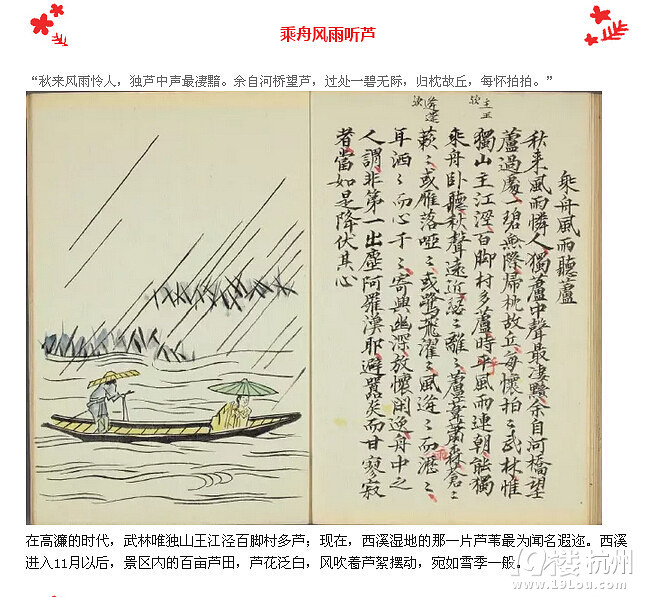 乘舟风雨听芦
“秋来风雨怜人，独芦中声最凄黯。余自河桥望芦，过处一碧无际，归枕故丘，每怀拍拍。”
乘舟風雨聽蘆
秋来風雨憐人獨蘆中聲最凄黯余自河橋望
蘆過處一碧無際帰枕故丘每懷拍〻武林惟
獨山主江涇百脚村多蘆時平風雨連朝能獨
乘舟卧聽秋聲遠近瑟〻離〻蘆葦蕭森蒼〻
蔌〻或雁落啞〻或鷺飛濯〻風海〻而瀝〻
耳洒〻而心于〻寄興幽深放懷閒逸舟中之
人謂非第一出塵阿羅漢耶避囂炎而甘寥寂
者當如是降伏其心
在高濂的时代，武林唯独山王江泾百脚村多芦；现在，西溪湿地的那一片芦苇最为闻名遐迩。西溪
进入11月以后，景区内的百亩芦田，芦花泛白，风吹着芦絮摆动，宛如雪季一般。
19楼杭州
www.19lou.com